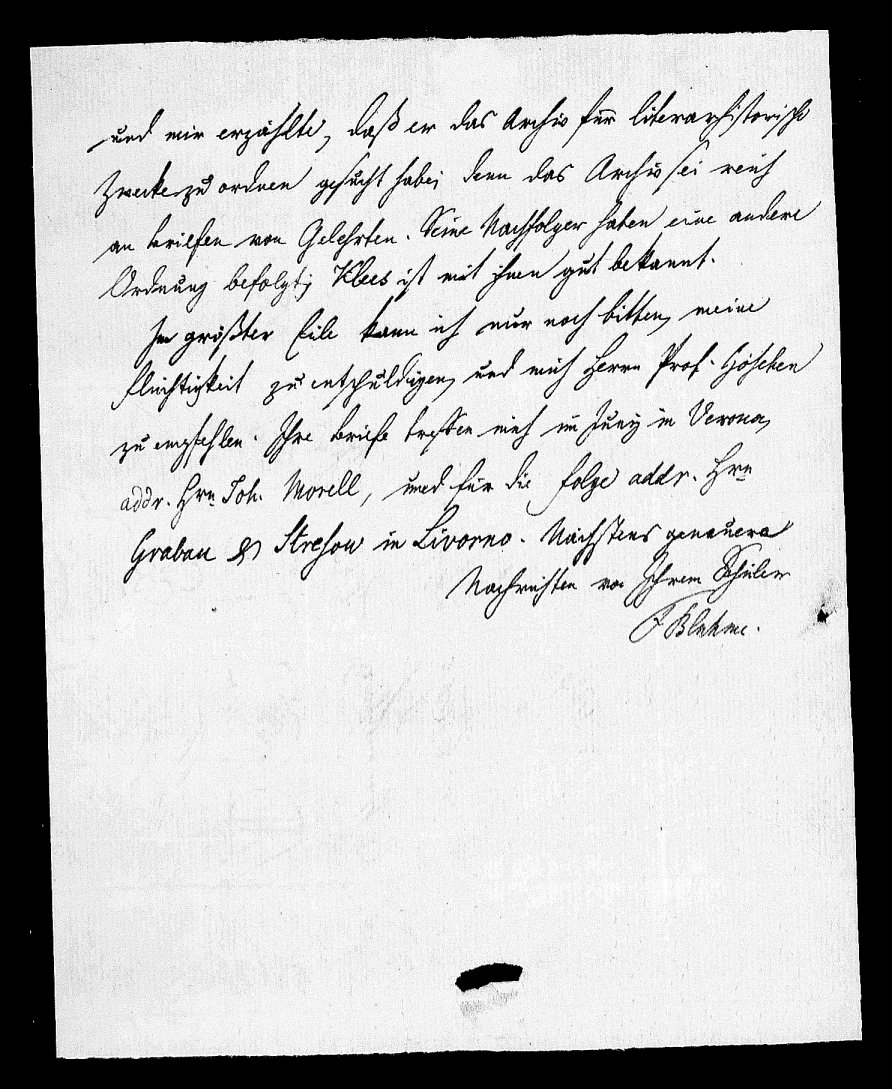 und mir erzählte, daß er das Archiv für literarhistorische
Zwecke zu ordnen gesucht habe; denn das Archiv sei reich
an Briefen von Gelehrten. Seine Nachfolger haben eine andere
Ordnung befolgt; Klees ist mit ihnen gut bekannt.
In größter Eile kann ich nur noch bitten, meine
Flüchtigkeit zu entschuldigen, und mich Herrn Prof. Göschen
zu empfehlen. Ihre Briefe treffen mich im Juny in Verona,
addr. Hrn Joh. Morell, und für die Folge addr. Hrn
Grabau & Stresow in Livorno. Nächstens genauere
Nachrichten von Ihrem Schüler
F Bluhme.